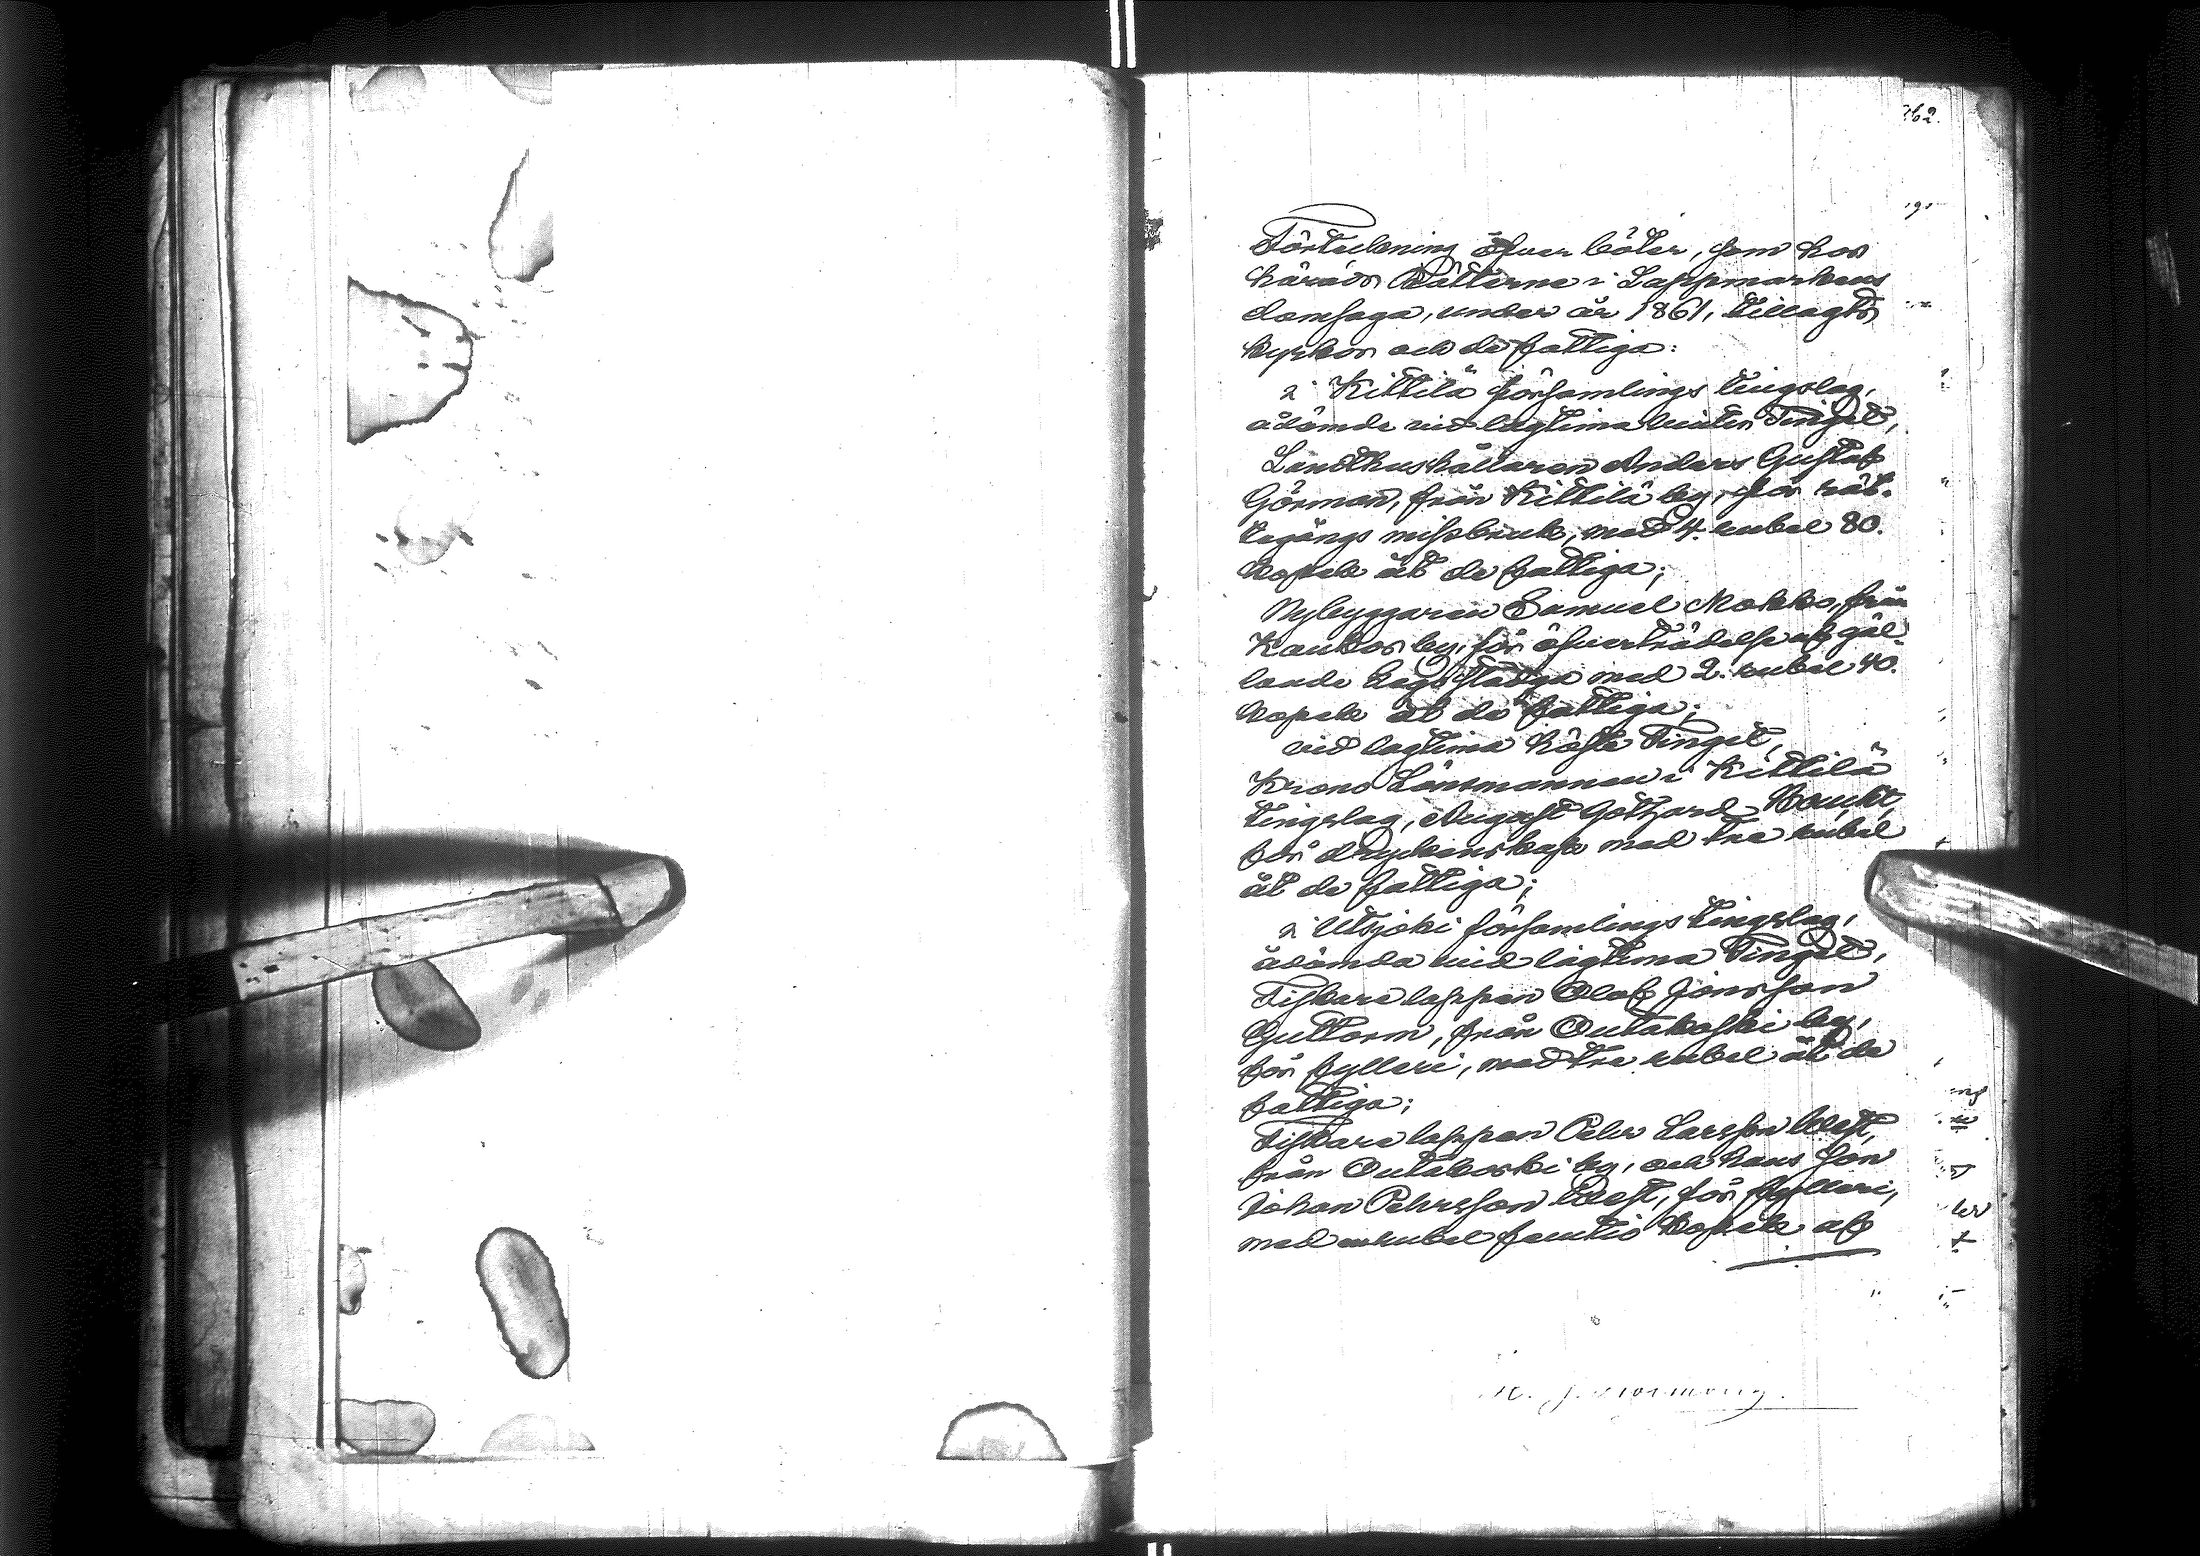 362.
Förteckning öfver böter, som hos
härads Rätterne i Lappmarkens
domsaga, under år 1861, tillagts
kyrkor och de fattiga:
i Kittilä församlings tingslag,
ådömde vid lagtima vinter Tinget,
Landthushållaren Anders Gustaf
Görman, från Kittilä by, för rät-
tegångs missbruk, med 4. rubel 80.
Kopek åt de fattiga;
Nybyggaren Samuel Mokko, från
Kaukos by, för öfverträdelse af gäl-
lande Legostadga med 2. rubel 40.
Kopek åt de fattiga;
vid lagtima höste Tinget,
Krono Länsmannen i Kittilä
tingslag, August Gothard
för dryckenskap med tre rubel
åt de fattiga;
i Utsjoki församlings tingslag,
ådömda vid lagtima Tinget,
Fiskare lappen Olof Jonsson
Guttorm, från Outakoski by,
för fylleri, med tre rubel åt de
fattiga;
Fiskare lappen Pehr Larsson West,
från Outakoski by, och hans son
Johan Pehrsson West, för fylleri,
med en rubel femtio Kopek af